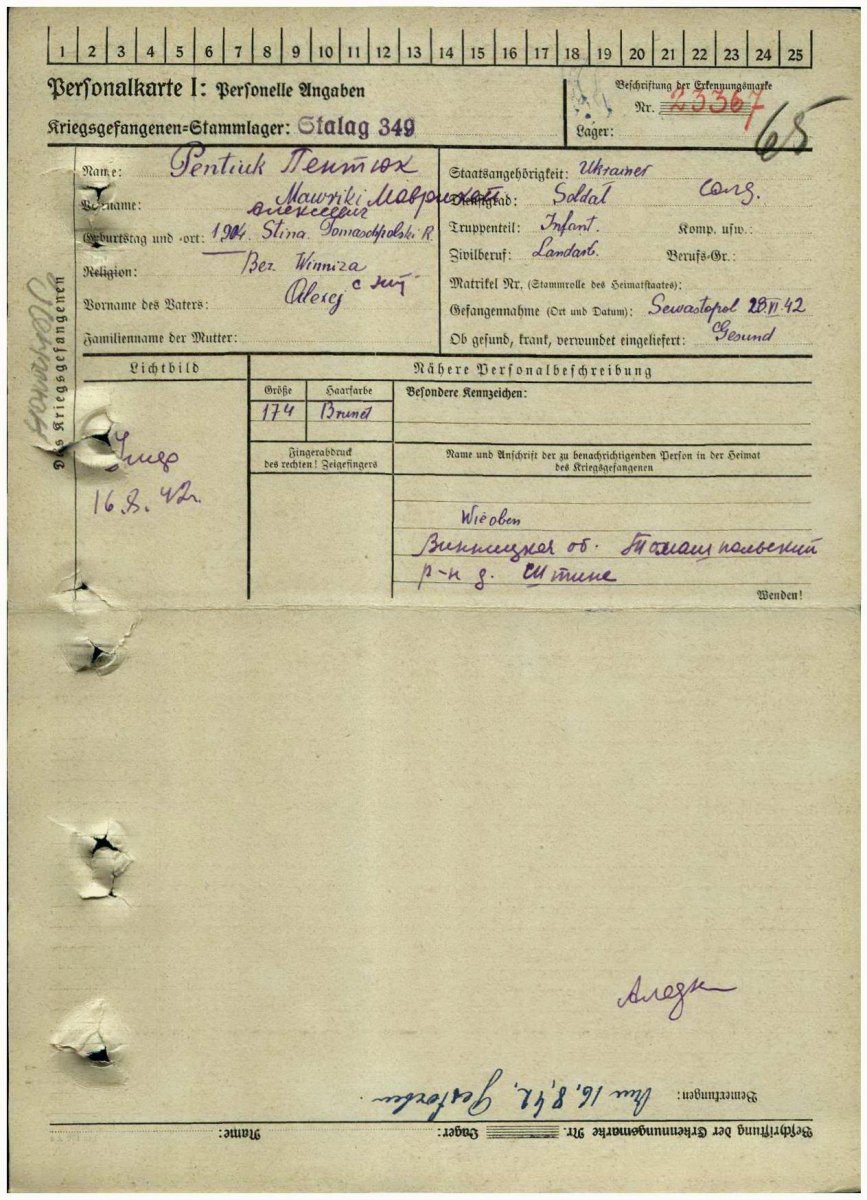 1 2 3 4 5 6 7 8 9 10 11 12 13 14 15 16 17 18 19 20 21 22 23 24 25
Personalkarte I: Personelle Angaben
Kriegsgefangenen-Stammlager: Stalag 349
Beschriftung der Erkennungsmarke
Nr. 23367
Lager:
65
Name: Pentiuk Пентюх
Vorname: Mawriki Маврикий
Алексеевич
Geburtstag und -ort: 1904. Stina Tomaschpolski R.
Bez. Winniza
Religion:
Vorname des Vaters: Alexej
Familienname der Mutter:
Staatsangehörigkeit: Ukrainer
Dienstgrad: Soldat солд.
Truppenteil: Infant. Komp. usw.:
Zivilberuf: Landarb. Berufs-Gr.:
Matrikel Nr. (Stammrolle des Heimatstaates):
Gefangennahme (Ort und Datum): Sewastopol 28.VI.42
Ob gesund, krank, verwundet eingeliefert: Gesund
Des Kriegsgefangenen
Lichtbild
Nähere Personalbeschreibung
Größe Haarfarbe
174 Brunet
Besondere Kennzeichen:
Fingerabdruck
des rechten! Zeigefingers
Name und Anschrift der zu benachrichtigenden Person in der Heimat
des Kriegsgefangenen
Умер
16.8.42г.
Wie oben
Винницкая об. Томашпольский
р-н д. Штине
Wenden!
Bemerkungen: Am 16.8.42. Gestorben.
Beschriftung der Erkennungsmarke Nr. Lager: Name: